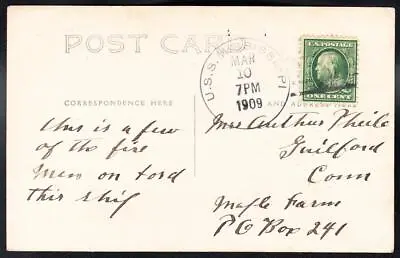 POST CARD
U.S.S. MISSISSIPPI
MAR
10
7PM
1909
U.S. POSTAGE
ONE CENT
CORRESPONDENCE HERE
AND ADDRESS HERE
this is a few
of the fire
men on bord
this ship
Mrs Arthur
Guilford
Conn
Maple Farm
PO Box 241